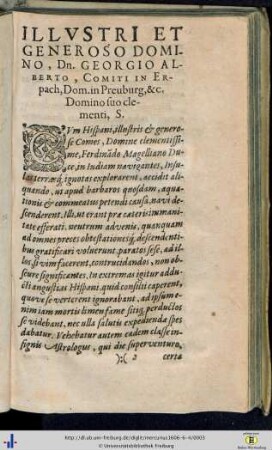 ILLVSTRI ET
GENEROSO DOMI-
NO, Dn. GEORGIO AL-
BERTO, COMITI IN ER-
pach, Dom. in Preuburg, &c.
Domino suo cle-
menti, S.
CVm Hispani, illustris & genero-
se Comes, Domine clementissi-
me, Ferdinãdo Magelliano Du-
ce, in Indiam navigantes, insu-
las terrasq́; ignotas explorarent, accidit ali-
quando, ut apud barbaros quosdam, aqua-
tionis & commeatus petendi causâ, navi de-
scenderent. Illi, ut erant præ cæteris immani-
tate efferati, neutrum advenis, quanquam
ad omnes preces obtestationesq́; descendenti-
bus gratificari voluerunt: paratos sese, ad il-
los, si vim facerent, contrucidandos, non ob-
scurè significantes. In extremas igitur addu-
cti angustias Hispani, quid consilii caperent,
quove se verterent ignorabant, ad ipsum e-
nim jam mortis limen fame sitiq́; perductos
se videbant, nec ulla salutis expediendæ spes
dabatur. Vehebatur autem eadem classe in-
signis Astrologus, qui die superventuro,
):( 2 certo
http://dl.ub.uni-freiburg.de/diglit/mercurius1606-b-4/0003
© Universitätsbibliothek Freiburg